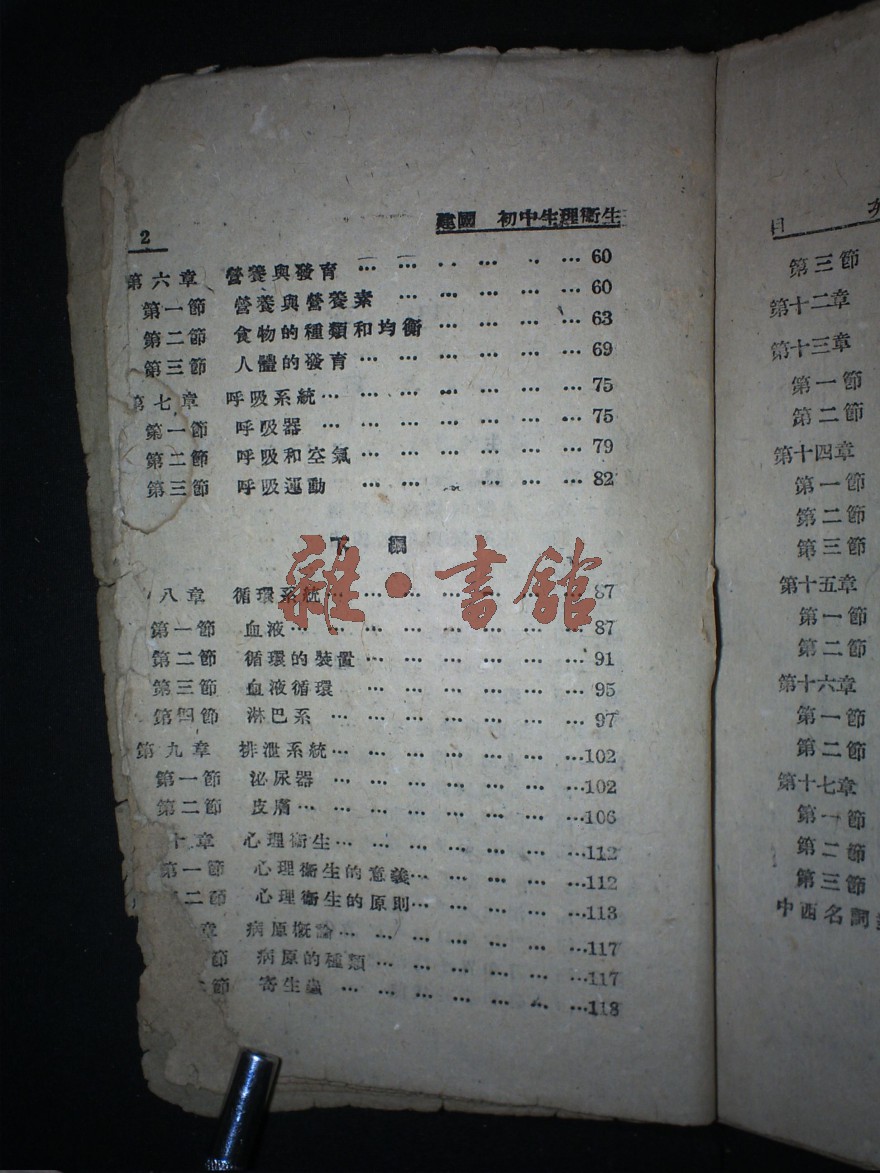 2
建國 初中生理衞生
第六章 營養與發育 … … ‥ … ‥ … 60
第一節 營養與營養素 … … … … … 60
第二節 食物的種類和均衡 … … … … 63
第三節 人體的發育 … … … … … … 69
第七章 呼吸系統 … … … … … … … 75
第一節 呼吸器 … … … … … … … 75
第二節 呼吸和空氣 … … … … … … 79
第三節 呼吸運動 … … … … … 82
下
八章 循環系統 … … … … … … … 87
第一節 血液 … … … … … … … … 87
第二節 循環的裝置 … … … … … … 91
第三節 血液循環 … … … … … … 95
第四節 淋巴系 … … … … … … … 97
第九章 排泄系統 … … … … … … … 102
第一節 泌尿器 … … … … … … … 102
第二節 皮膚 … … … … … … … … 106
十章 心理衞生 … … … … … … … 112
第一節 心理衞生的意義 … … … … … 112
二節 心理衞生的原則 … … … … … 113
章 病原概論 … … … … … … … 117
節 病原的種類 … … … … … … 117
節 寄生蟲 … … … … … … … 118
雜·書館
目
第三節
第十二章
第十三章
第一節
第二節
第十四章
第一節
第二節
第三節
第十五章
第一節
第二節
第十六章
第一節
第二節
第十七章
第一節
第二節
第三節
中西名詞